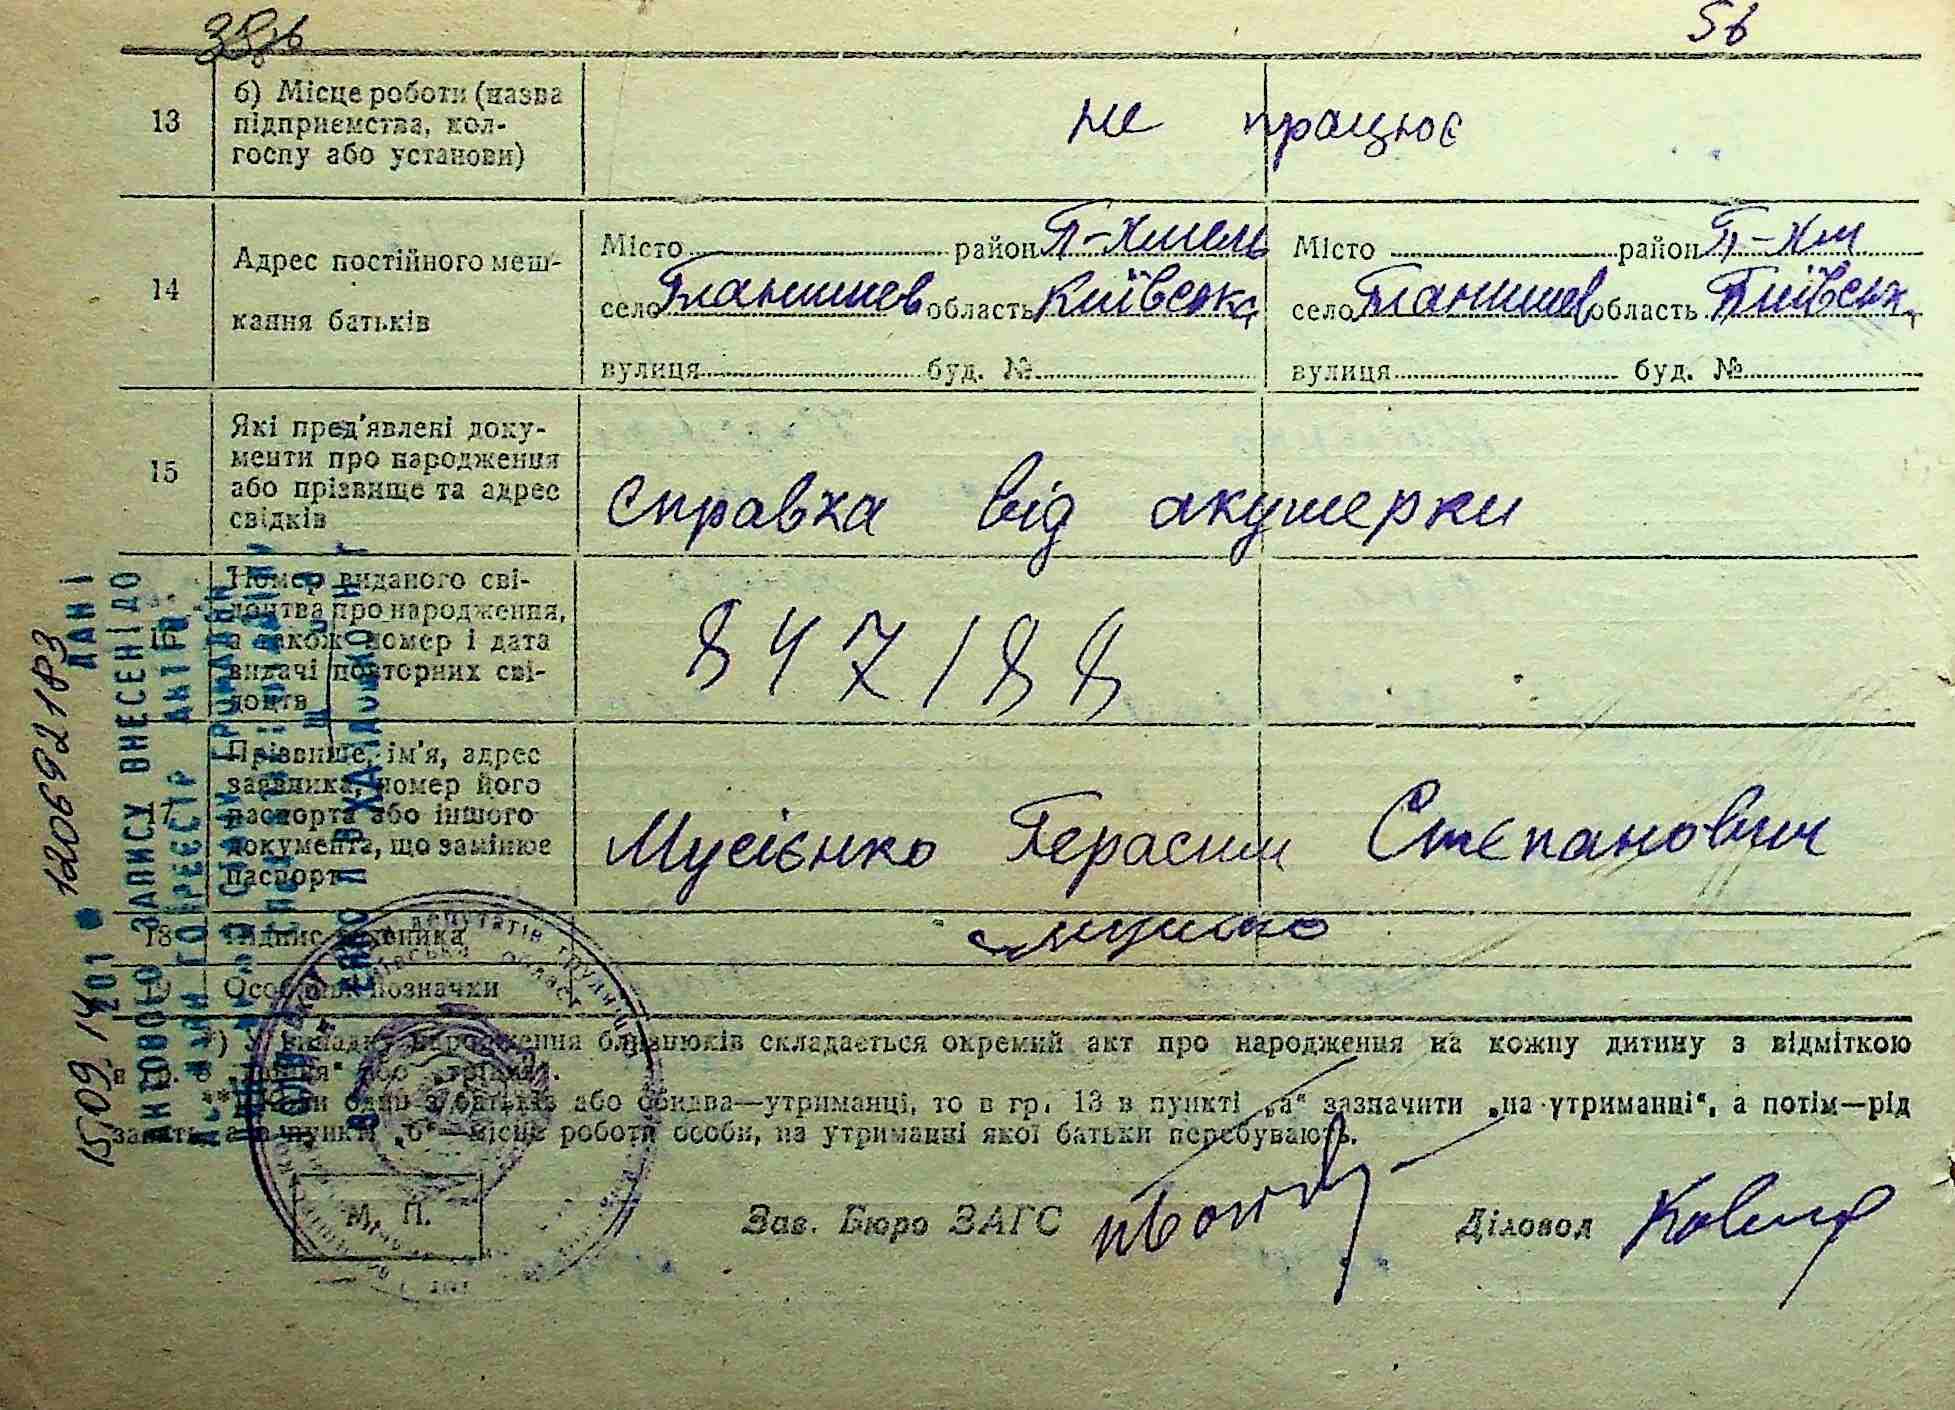 5в
13
б) Місце роботи (назва
підприємства, кол-
госпу або установи)
не працює
14
Адрес постійного меш-
кання батьків
Місто район П-Хмель
село область Київська
вулиця буд. №
Місто район П-Хм
село область Київськ
вулиця буд. №
15
Які пред'явлені доку-
менти про народження
або прізвище та адрес
свідків
Справка від акушерки
16
Номер виданого сві-
доцтва про народження,
а також номер і дата
видачі повторних сві-
доцтв
847188
17
Прізвище, ім'я, адрес
заявника, номер його
паспорта або іншого
документа, що замінює
паспорт
Мусієнко Герасим Степанович
18 Підпис
19 Особливі позначки
*) У випадку народження близнюків складається окремий акт про народження на кожну дитину з відміткою
в гр. або
**) один з батьків або обидва—утриманці, то в гр. 13 в пункті „а“ зазначити „на утриманні“, а потім—рід
пункті „б“—місце роботи особи, на утриманні якої батьки перебувають.
М. П.
Зав. Бюро ЗАГС
Діловод
ДАНІ
АКТОВОГО ЗАПИСУ ВНЕСЕНІ ДО
РЕЄСТР АКТІВ
ГРОМАДЯН
15.09.14 201 120692183
депутатів